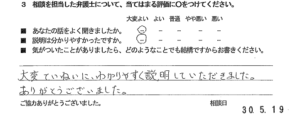 3 相談を担当した弁護士について、当てはまる評価に○をつけてください。
大変よい よい 普通 やや悪い 悪い
■ あなたの話をよく聞きましたか。
■ 説明は分かりやすかったですか。
■ 気がついたことがありましたら、どのようなことでも結構ですからお書きください。
大変ていねいに、わかりやすく説明していただきました。
ありがとうございました。
ご協力ありがとうございました。 相談日 30.5.19